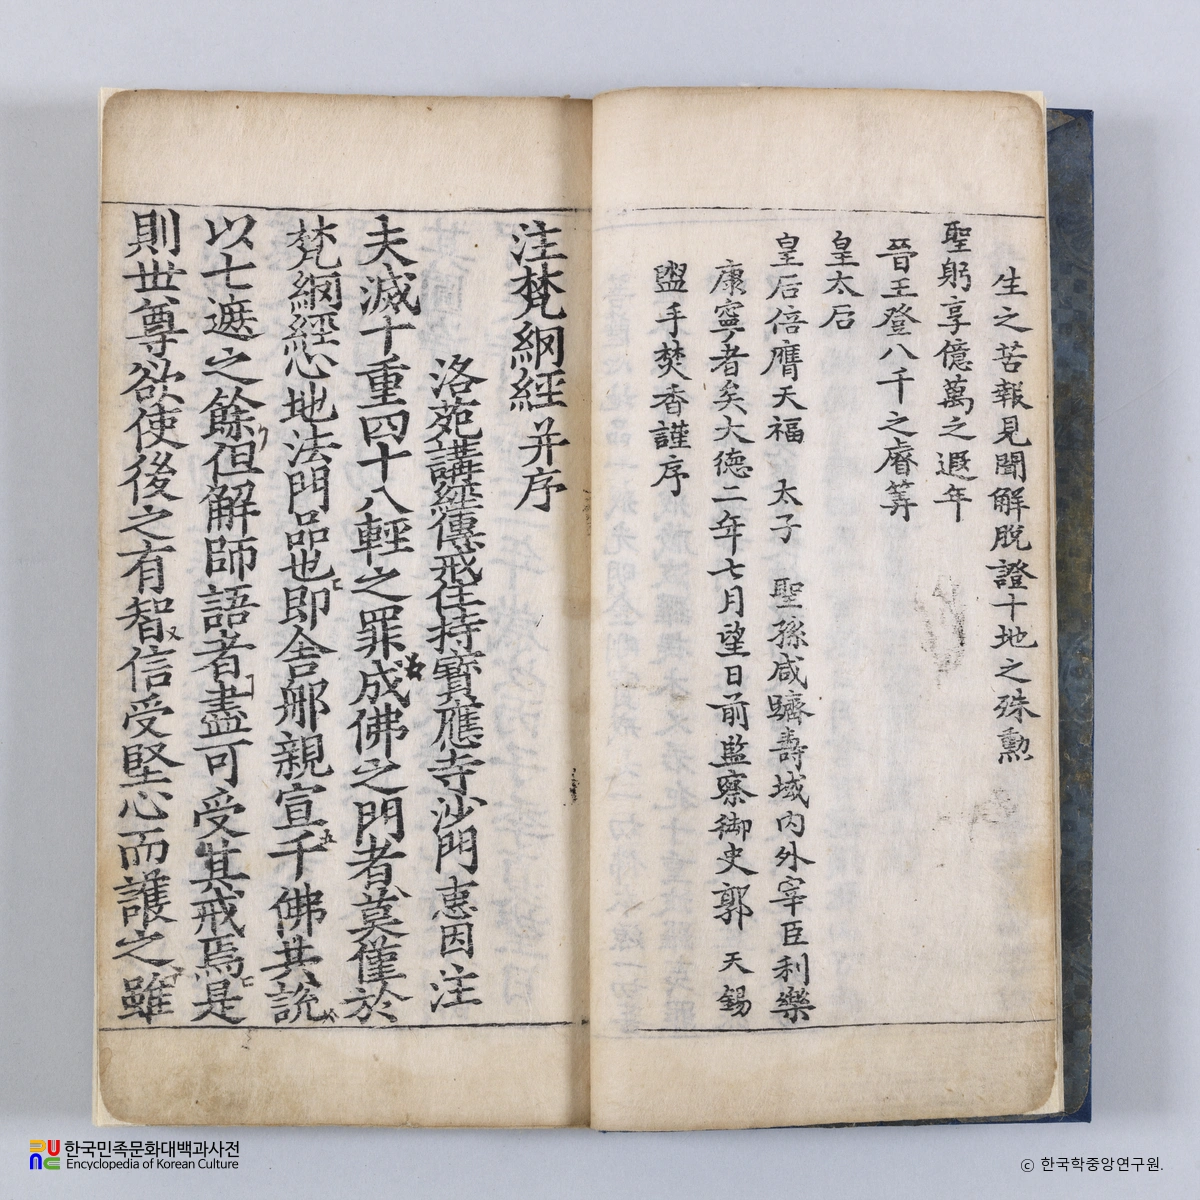 生之苦報見聞解脫證十地之殊勳
聖躬享億萬之遐年
晉王登八千之睿筭
皇太后
皇后倍膺天福 太子 聖孫咸躋壽域內外宰臣利樂
康寧者矣大德二年七月望日前監察御史郭 天錫
盥手焚香謹序
注梵網經 并序
洛苑講經傳戒住持寶應寺沙門惠因注
夫滅十重四十八輕之罪成佛之門者莫僅於
梵網經心地法門品也即舍那親宣千佛共說
以七遮之餘但解師語者盡可受其戒焉是
則世尊欲使後之有智信受堅心而護之雖
한국민족문화대백과사전
Encyclopedia of Korean Culture
© 한국학중앙연구원.